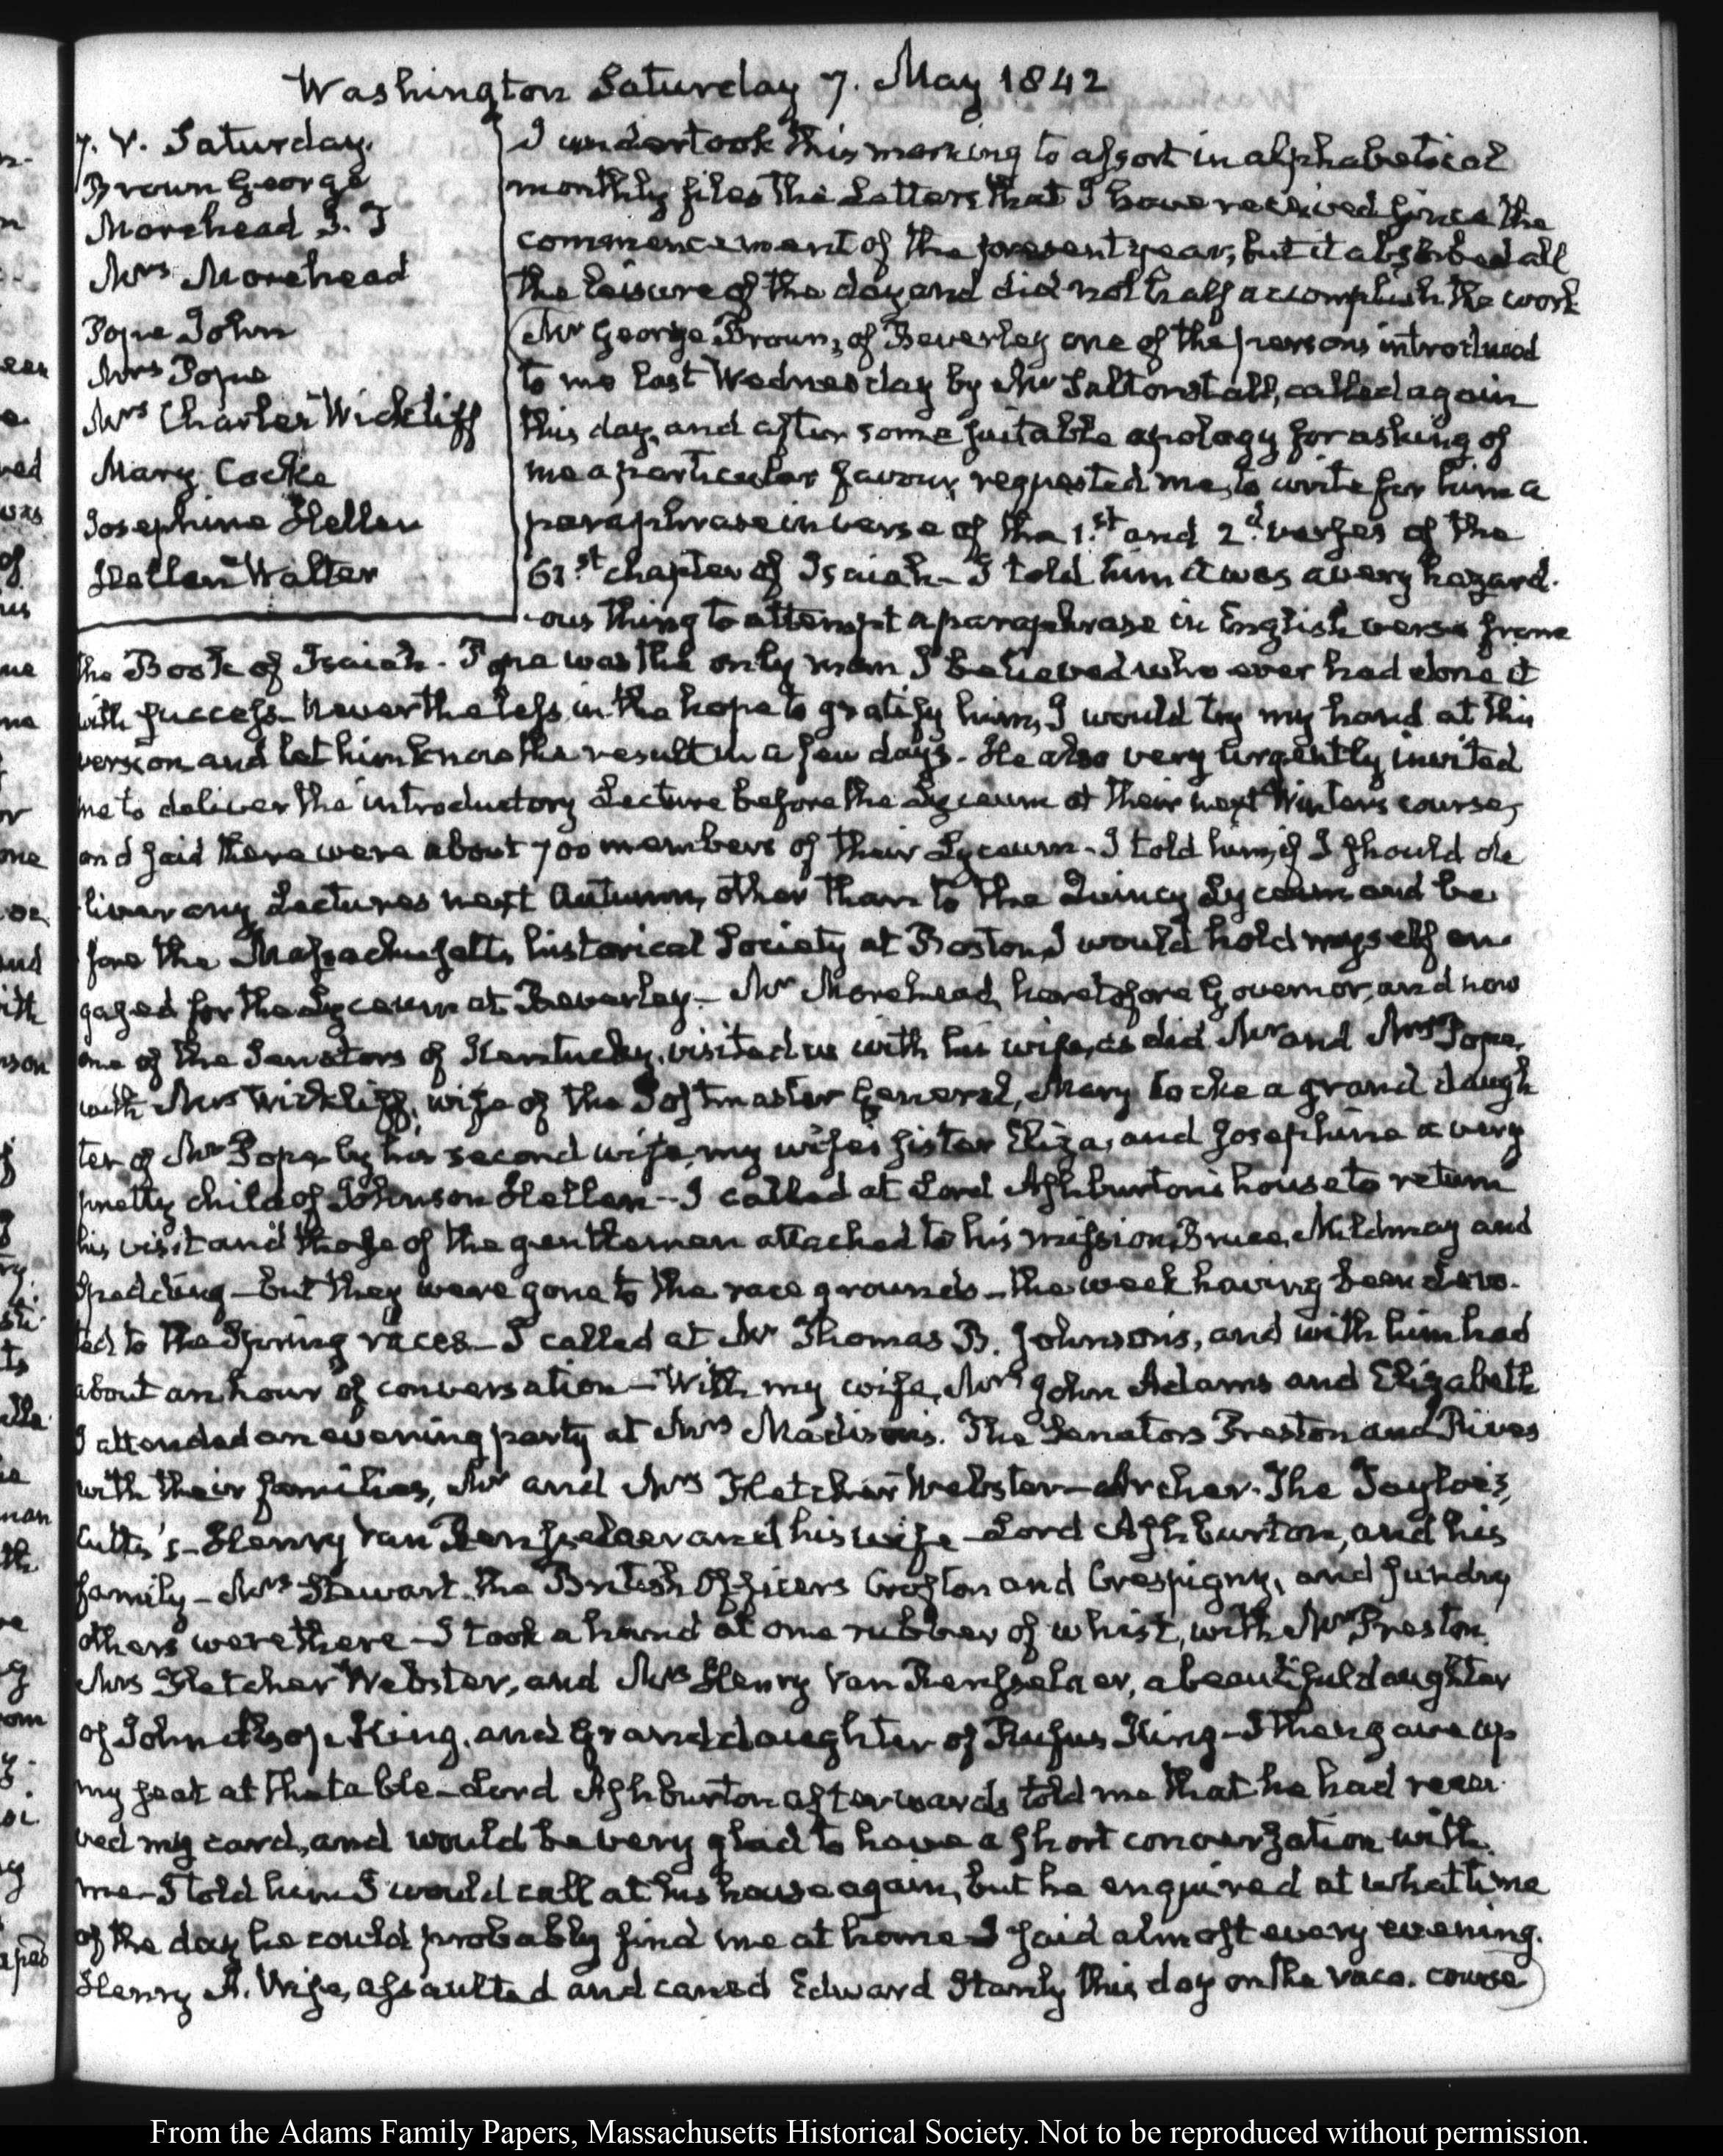 Washington Saturday 7. May 1842
7. V. Saturday.
Brown George
Morehead J. T
Mrs Morehead
Pope John
Mrs Pope
Mrs Charles Wickliff
Mary Cocke
Josephine Hellen
Hellen Walter
I undertook this morning to assort in alphabetical
monthly files the Letters that I have received since the
commencement of the present year, but it absorbed all
the leisure of the day and did not half accomplish the work
Mr George Brown, of Beverley one of the persons introduced
to me last Wednesday by Mr Saltonstall, called again
this day, and after some suitable apology for asking of
me a particular favour, requested me, to write for him a
paraphrase in verse of the 1.st and 2.d verses of the
61.st chapter of Isaiah - I told him it was a very hazard-
-ous thing to attempt a paraphrase in English verse from
the Book of Isaiah. Pope was the only man I believed who ever had done it
with success - Nevertheless, in the hope to gratify him, I would try my hand at this
version and let him know the result in a few days. He also very urgently invited
me to deliver the introductory Lecture before the Lyceum at their next Winter's course,
and said there were about 700 members of their Lyceum - I told him, if I should de
liver any Lectures next Autumn, other than to the Quincy Lyceum and be
fore the Massachusetts historical Society at Boston, I would hold myself en
gaged for the Lyceum at Beverley - Mr Morehead, heretofore Governor, and now
one of the Senators of Kentucky, visited us with his wife, as did Mr and Mrs Pope,
with Mrs Wickliff, wife of the Postmaster General, Mary Cocke a grand daugh
ter of Mr Pope by his second wife, my wife's sister Eliza, and Josephine a very
pretty child of Johnson Hellen - I called at Lord Ashburton's house to return
his visit and those of the gentlemen attached to his mission, Bruce, Mildmay and
Spedding - but they were gone to the race grounds - the week having been devo-
ted to the Spring races - I called at Mr Thomas B. Johnson's, and with him had
about an hour of conversation - With my wife, Mrs John Adams and Elizabeth
I attended an evening party at Mrs Madison's. The Senators Preston and Rives
with their families, Mr and Mrs Fletcher Webster - Archer - The Tayloe's,
Cutts's - Henry Van Rensselaer and his wife - Lord Ashburton, and his
family - Mrs Stewart. the British Officers Crofton and Crespigny, and sundry
others were there - I took a hand at one rubber of whist, with Mrs Preston
Mrs Fletcher Webster, and Mrs Henry Van Rensselaer, a beautiful daughter
of John Alsop King, and Grand daughter of Rufus King - I then gave up
my seat at the table - Lord Ashburton afterwards told me that he had recei-
ved my card, and would be very glad to have a short conversation with
me - I told him I would call at his house again, but he enquired at what time
of the day he could probably find me at home - I said almost every evening.
Henry A. Wise, assaulted and caned Edward Stanly this day on the race-course
From the Adams Family Papers, Massachusetts Historical Society. Not to be reproduced without permission.